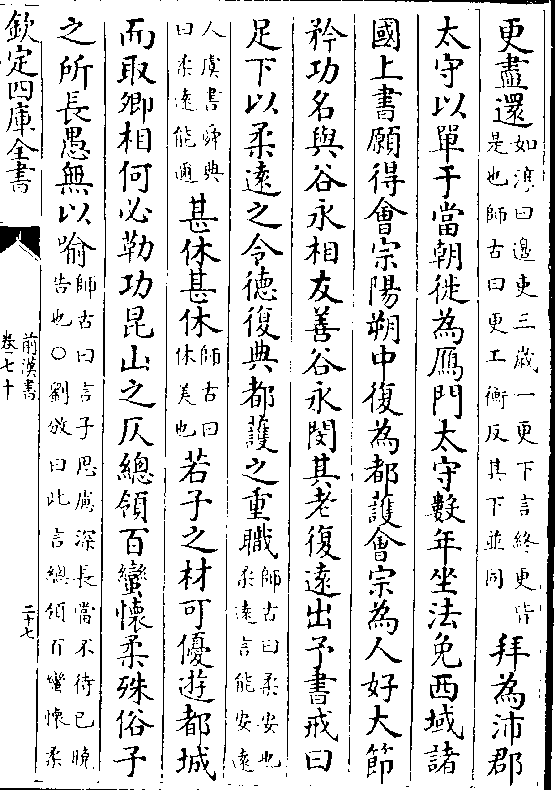 更盡還如淳曰邊吏三歲一更下言終更皆是也師古曰更工衡反其下並同拜為沛郡
太守以單于當朝徙為鴈門太守數年坐法免西域諸
國上書願得會宗陽朔中復為都護會宗為人好大節
矜功名與谷永相友善谷永閔其老復遠出予書戒曰
足下以柔遠之令德復典都護之重職師古曰柔安也柔遠言能安遠
人虞書舜典曰柔遠能邇甚休甚休師古曰休美也若子之材可優遊都城
而取卿相何必勒功昆山之仄總領百蠻懷柔殊俗子
之所長愚無以喻師古曰言子思慮深長當不待已曉告也○劉攽曰此言總領百蠻懷柔
欽定四庫全書
前漢書
卷七十
二十七